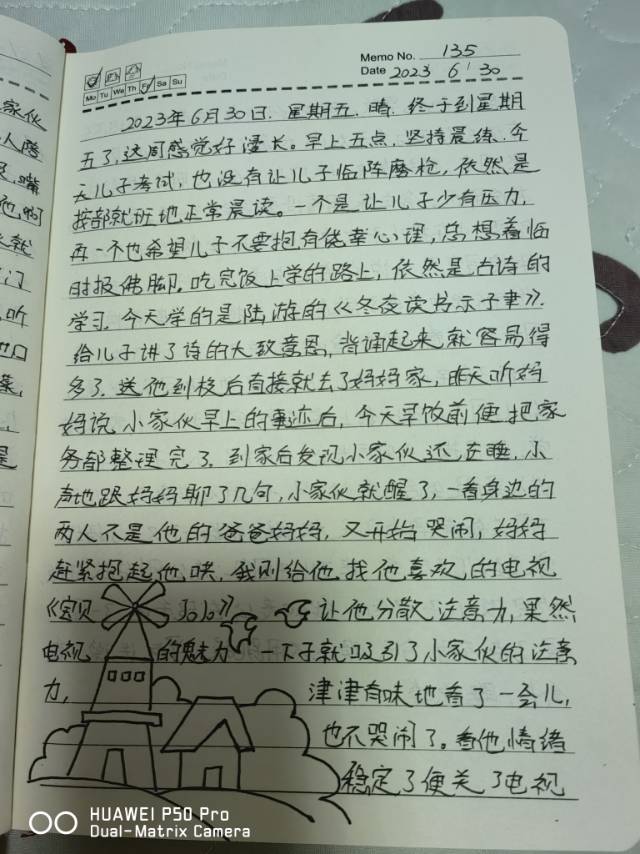 家伙
Memo No. 135
Mo Tu We Th Fr Sa Su
Date 2023 6 30
2023年6月30日. 星期五. 晴. 终于到星期
五了,这周感觉好漫长。早上五点,坚持晨练.今
天儿子考试,也没有让儿子临阵磨枪,依然是
按部就班地正常晨读。一个是让儿子少有压力,
再一个也希望儿子不要抱有侥幸心理,总想着临
时报佛脚。吃完饭上学的路上,依然是古诗的
学习.今天学的是陆游的《冬夜读书示子聿》.
给儿子讲了诗的大致意思,背诵起来就容易得
多了.送他到校后直接就去了妈妈家,昨天听妈
妈说小家伙早上的事迹后,今天早饭前便把家
务都整理完了.到家后发现小家伙还在睡,小
声地跟妈妈聊了几句,小家伙就醒了,一看身边的
两人不是他的爸爸妈妈,又开始哭闹,妈妈
赶紧抱起他哄,我则给他找他喜欢的电视
《宝贝JoJo》让他分散注意力,果然
电视的魅力一下子就吸引了小家伙的注意
力,津津有味地看了一会儿,
也不哭闹了。看他情绪
稳定了便关了电视
HUAWEI P50 Pro
Dual-Matrix Camera